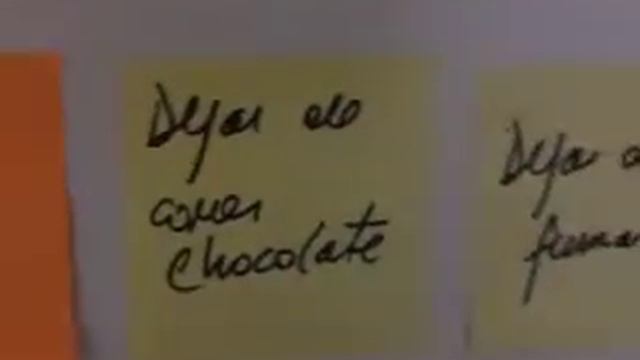 Dejar de
comer
chocolate
Dejar d
fuma